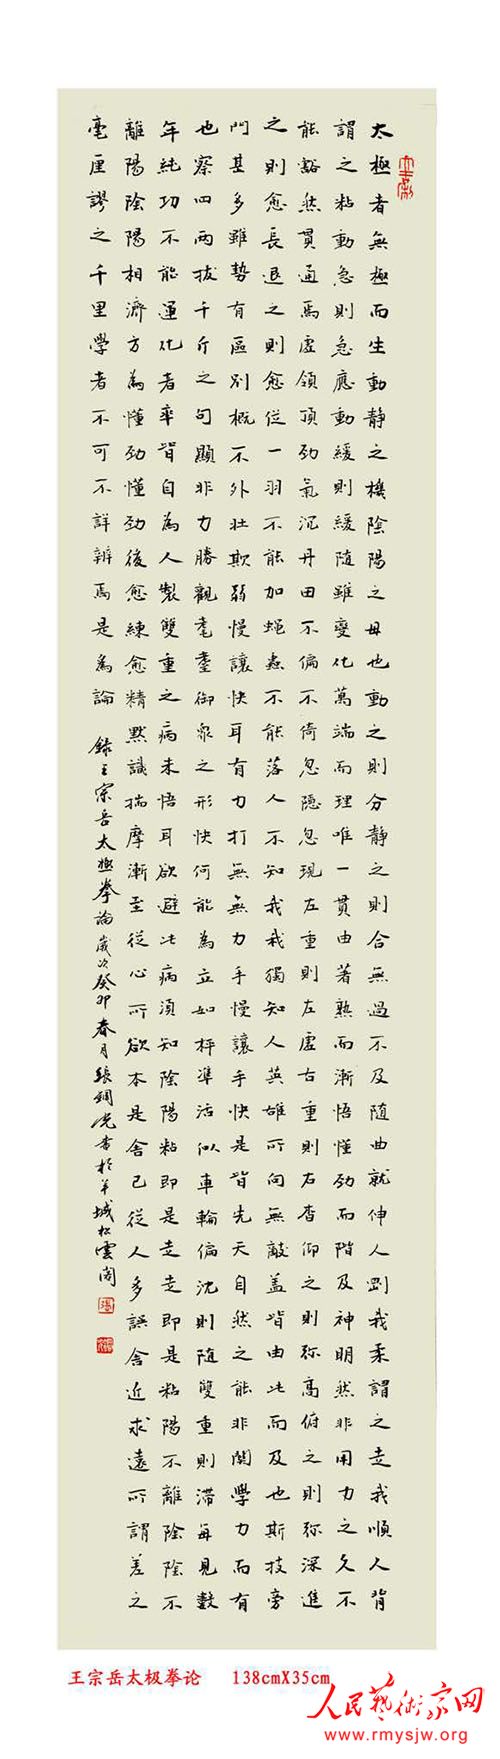 太極者無極而生動靜之機陰陽之母也動之則分靜之則合無過不及随曲就伸人剛我柔謂之走我順人背
謂之粘動急則急應動緩則緩随雖變化萬端而理唯一貫由著熟而漸悟懂劲而階及神明然非用力之久不
能豁然貫通焉虚領頂劲氣沉丹田不偏不倚忽隐忽現左重則左虚右重則右杳仰之則弥高俯之則弥深進
之則愈長退之則愈促一羽不能加蝇虫不能落人不知我我獨知人英雄所向無敵盖皆由此而及也斯技旁
門甚多雖勢有區别概不外壯欺弱慢讓快耳有力打無力手慢讓手快是皆先天自然之能非關學力而有
也察四两拔千斤之句顯非力勝觀耄耋御衆之形快何能為立如枰凖活似車輪偏沈則随雙重則滞每見數
年純功不能運化者率皆自為人製雙重之病未悟耳欲避此病須知陰陽粘即是走走即是粘陽不離陰陰不
離陽陰陽相濟方為懂劲懂劲後愈練愈精黙識揣摩漸至従心所欲本是舍己従人多誤舍近求遠所謂差之
毫厘謬之千里學者不可不詳辨焉是為論
録王宗岳太極拳論歲次癸卯春月張鋼書於羊城松雲阁
王宗岳太极拳论 138cmX35cm
人民藝術家网
www.rmysjw.org